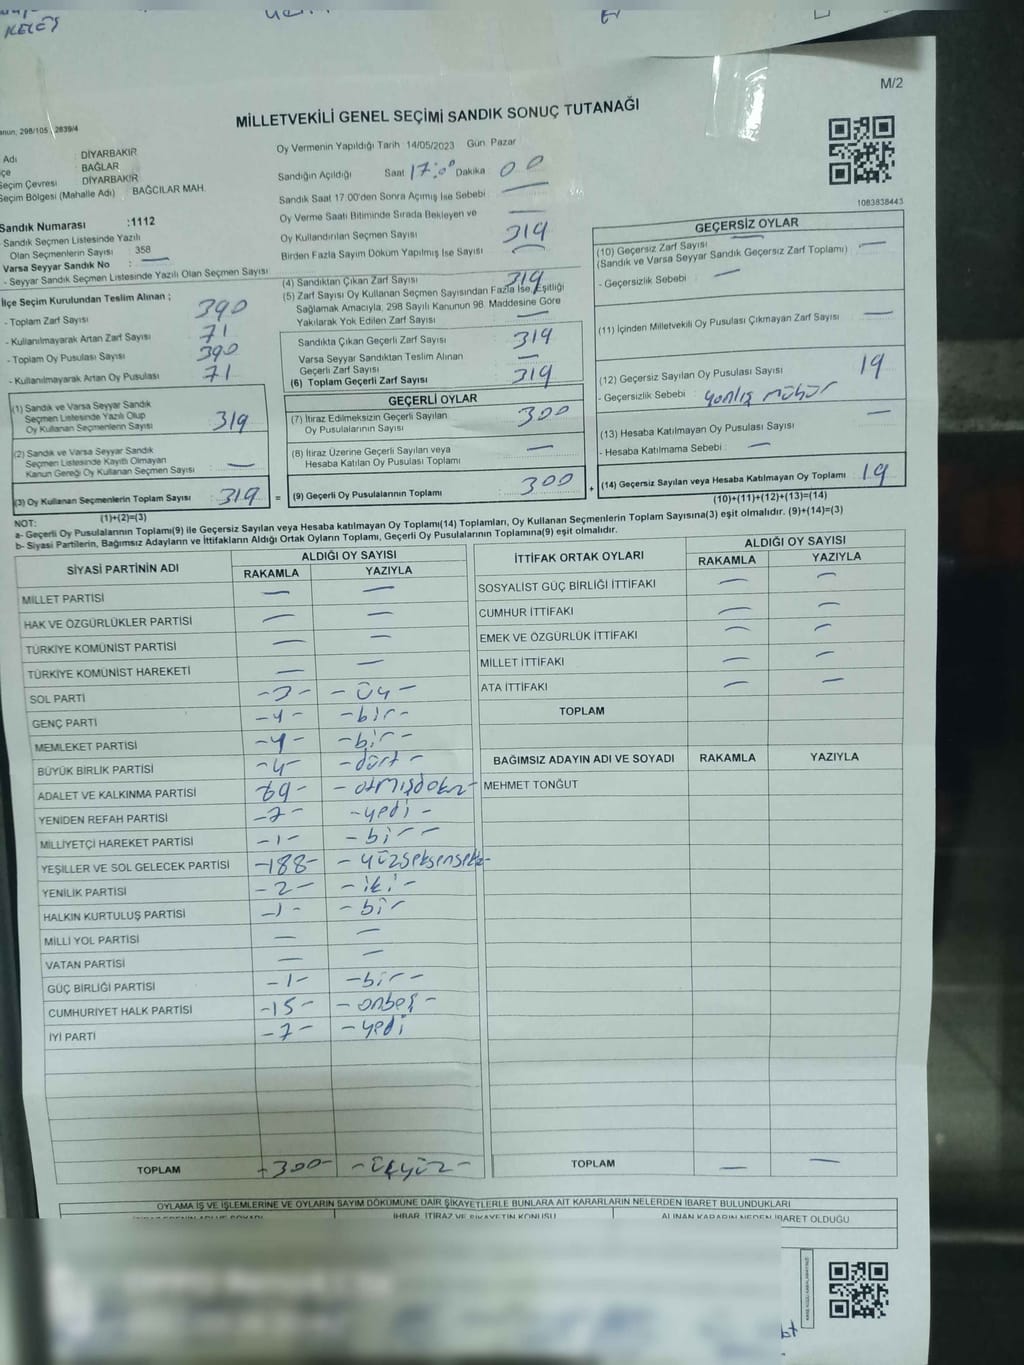 KELEŞ
M/2
MİLLETVEKİLİ GENEL SEÇİMİ SANDIK SONUÇ TUTANAĞI
298/105 2839/4
Adı : DİYARBAKIR
: BAĞLAR
Seçim Çevresi : DİYARBAKIR
Seçim Bölgesi (Mahalle Adı) : BAĞCILAR MAH.
Sandık Numarası :1112
- Sandık Seçmen Listesinde Yazılı
Olan Seçmenlerin Sayısı : 358
Varsa Seyyar Sandık No : —
- Seyyar Sandık Seçmen Listesinde Yazılı Olan Seçmen Sayısı
Oy Vermenin Yapıldığı Tarih 14/05/2023 Gün. Pazar
Sandığın Açıldığı Saat 17:0 Dakika 00
Sandık Saat 17.00'den Sonra Açımış İse Sebebi —
Oy Verme Saati Bitiminde Sırada Bekleyen ve —
Oy Kullandırılan Seçmen Sayısı 319
Birden Fazla Sayım Döküm Yapılmış İse Sayısı —
1083838443
İlçe Seçim Kurulundan Teslim Alınan ;
- Toplam Zarf Sayısı 390
- Kullanılmayarak Artan Zarf Sayısı 71
- Toplam Oy Pusulası Sayısı 390
- Kullanılmayarak Artan Oy Pusulası 71
(1) Sandık ve Varsa Seyyar Sandık
Seçmen Listesinde Yazılı Olup
Oy Kullanan Seçmenlerin Sayısı : 319
(2) Sandık ve Varsa Seyyar Sandık
Seçmen Listesinde Kayıtlı Olmayan
Kanun Gereği Oy Kullanan Seçmen Sayısı : —
(3) Oy Kullanan Seçmenlerin Toplam Sayısı : 319 =
(1)+(2)=(3)
(4) Sandıktan Çıkan Zarf Sayısı 319
(5) Zarf Sayısı Oy Kullanan Seçmen Sayısından Fazla İse, Eşitliği
Sağlamak Amacıyla, 298 Sayılı Kanunun 98. Maddesine Göre
Yakılarak Yok Edilen Zarf Sayısı —
Sandıkta Çıkan Geçerli Zarf Sayısı 319
Varsa Seyyar Sandıktan Teslim Alınan
Geçerli Zarf Sayısı —
(6) Toplam Geçerli Zarf Sayısı 319
GEÇERLİ OYLAR
(7) İtiraz Edilmeksizin Geçerli Sayılan
Oy Pusulalarının Sayısı 300
(8) İtiraz Üzerine Geçerli Sayılan veya
Hesaba Katılan Oy Pusulası Toplamı —
(9) Geçerli Oy Pusulalarının Toplamı : 300 +
GEÇERSİZ OYLAR
(10) Geçersiz Zarf Sayısı —
(Sandık ve Varsa Seyyar Sandık Geçersiz Zarf Toplamı) —
- Geçersizlik Sebebi : —
(11) İçinden Milletvekili Oy Pusulası Çıkmayan Zarf Sayısı —
(12) Geçersiz Sayılan Oy Pusulası Sayısı 19
- Geçersizlik Sebebi : yanlış mühür
(13) Hesaba Katılmayan Oy Pusulası Sayısı —
- Hesaba Katılmama Sebebi : —
(14) Geçersiz Sayılan veya Hesaba Katılmayan Oy Toplamı 19
(10)+(11)+(12)+(13)=(14)
NOT:
a- Geçerli Oy Pusulalarının Toplamı(9) ile Geçersiz Sayılan veya Hesaba katılmayan Oy Toplamı(14) Toplamları, Oy Kullanan Seçmenlerin Toplam Sayısına(3) eşit olmalıdır. (9)+(14)=(3)
b- Siyasi Partilerin, Bağımsız Adayların ve İttifakların Aldığı Ortak Oyların Toplamı, Geçerli Oy Pusulalarının Toplamına(9) eşit olmalıdır.
SİYASİ PARTİNİN ADI ALDIĞI OY SAYISI
RAKAMLA YAZIYLA
MİLLET PARTİSİ — —
HAK VE ÖZGÜRLÜKLER PARTİSİ — —
TÜRKİYE KOMÜNİST PARTİSİ — —
TÜRKİYE KOMÜNİST HAREKETİ — —
SOL PARTİ -3- - Üç -
GENÇ PARTİ -1- -bir-
MEMLEKET PARTİSİ -1- -bir-
BÜYÜK BİRLİK PARTİSİ -4- -dört-
ADALET VE KALKINMA PARTİSİ 69- - atmışdokuz-
YENİDEN REFAH PARTİSİ -7- -yedi-
MİLLİYETÇİ HAREKET PARTİSİ -1- -bir-
YEŞİLLER VE SOL GELECEK PARTİSİ -188- - yüzseksensekiz-
YENİLİK PARTİSİ -2- -iki-
HALKIN KURTULUŞ PARTİSİ -1- -bir
MİLLİ YOL PARTİSİ — —
VATAN PARTİSİ — —
GÜÇ BİRLİĞİ PARTİSİ -1- -bir-
CUMHURİYET HALK PARTİSİ -15- -onbeş-
İYİ PARTİ -7- -yedi
TOPLAM -300- -üçyüz-
İTTİFAK ORTAK OYLARI ALDIĞI OY SAYISI
RAKAMLA YAZIYLA
SOSYALİST GÜÇ BİRLİĞİ İTTİFAKI — —
CUMHUR İTTİFAKI — —
EMEK VE ÖZGÜRLÜK İTTİFAKI — —
MİLLET İTTİFAKI — —
ATA İTTİFAKI — —
TOPLAM
BAĞIMSIZ ADAYIN ADI VE SOYADI RAKAMLA YAZIYLA
MEHMET TONĞUT
TOPLAM — —
OYLAMA İŞ VE İŞLEMLERİNE VE OYLARIN SAYIM DÖKÜMÜNE DAİR ŞİKAYETLERLE BUNLARA AİT KARARLARIN NELERDEN İBARET BULUNDUKLARI
İHBAR, İTİRAZ VE ŞİKAYETİN KONUSU ALINAN KARARIN NEDEN İBARET OLDUĞU